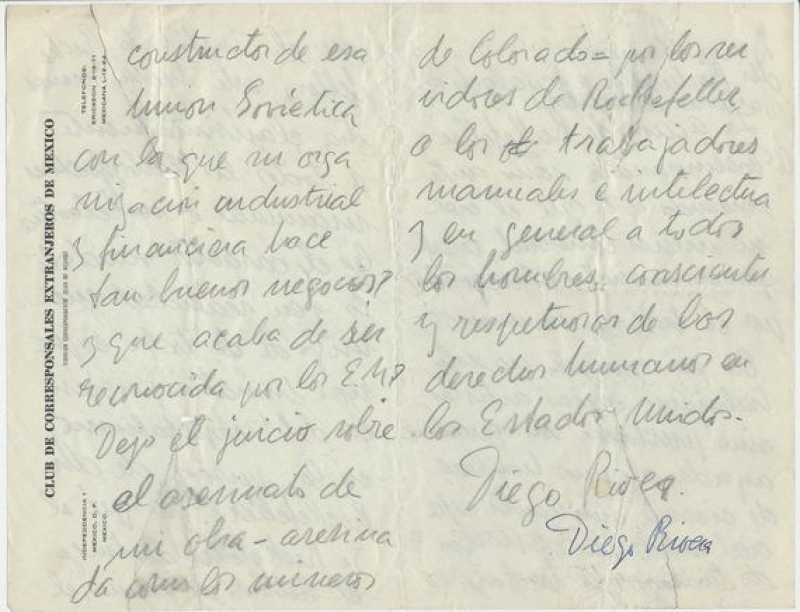 TELEFONOS:
ERICSSON 2-12-71
MEXICANA L-12-22
CLUB DE CORRESPONSALES EXTRANJEROS DE MEXICO
FOREIGN CORRESPONDENTS CLUB OF MEXICO
INDEPENDENCIA 1
MEXICO, D. F.
MEXICO.
constructor de esa
Union Soviética
con la que su orga
nización industrial
y financiera hace
tan buenos negocios?
y que acaba de ser
reconocida por los E.U?
Dejo el juicio sobre
el asesinato de
mi obra - asesina
da como los mineros
de Colorado = por los ser
vidores de Rockefeller,
a los trabajadores
manuales e intelectua
y en general a todos
los hombres, conscientes
y respetuosos de los
derechos humanos en
los Estados Unidos.
Diego Rivera.
Diego Rivera